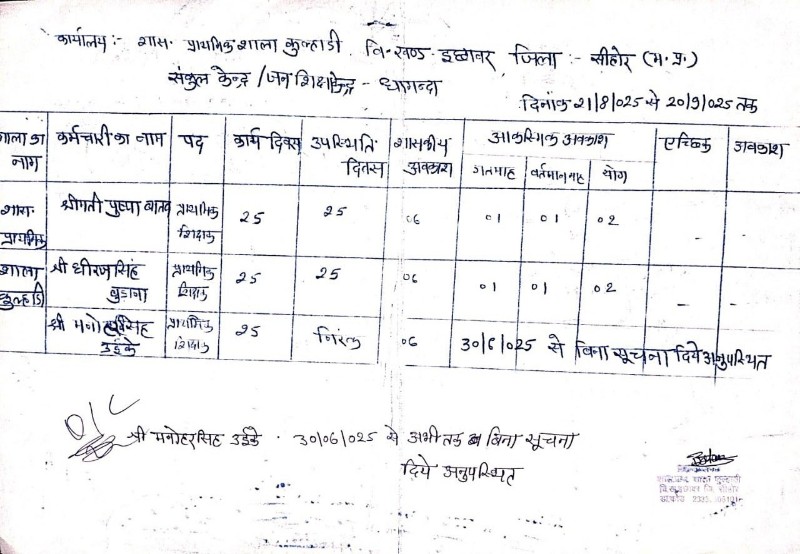 कार्यालय :- शास. प्राथमिक शाला कुल्हाडी वि.खण्ड इछावर जिला :- सीहोर (म.प्र.)
संकुल केन्द्र / जन शिक्षा केन्द्र - धामन्दा
दिनांक 21/8/025 से 20/9/025 तक
शाला का नाम कर्मचारी का नाम पद कार्य दिवस उपस्थिति दिवस शासकीय अवकाश आकस्मिक अवकाश एच्छिक अवकाश
गतमाह वर्तमान माह योग
शास. प्राथमिक श्रीमती पुष्पा प्राथमिक शिक्षक 25 25 06 01 01 02 - -
शाला कुल्हाडी श्री धीरज सिंह प्राथमिक शिक्षक 25 25 06 01 01 02 - -
श्री मनोहर सिंह उईके प्राथमिक शिक्षक 25 निरंक 06 30/6/025 से बिना सूचना दिये अनुपस्थित
श्री मनोहरसिंह उईके . 30/06/025 से अभी तक बिना सूचना
दिये अनुपस्थित